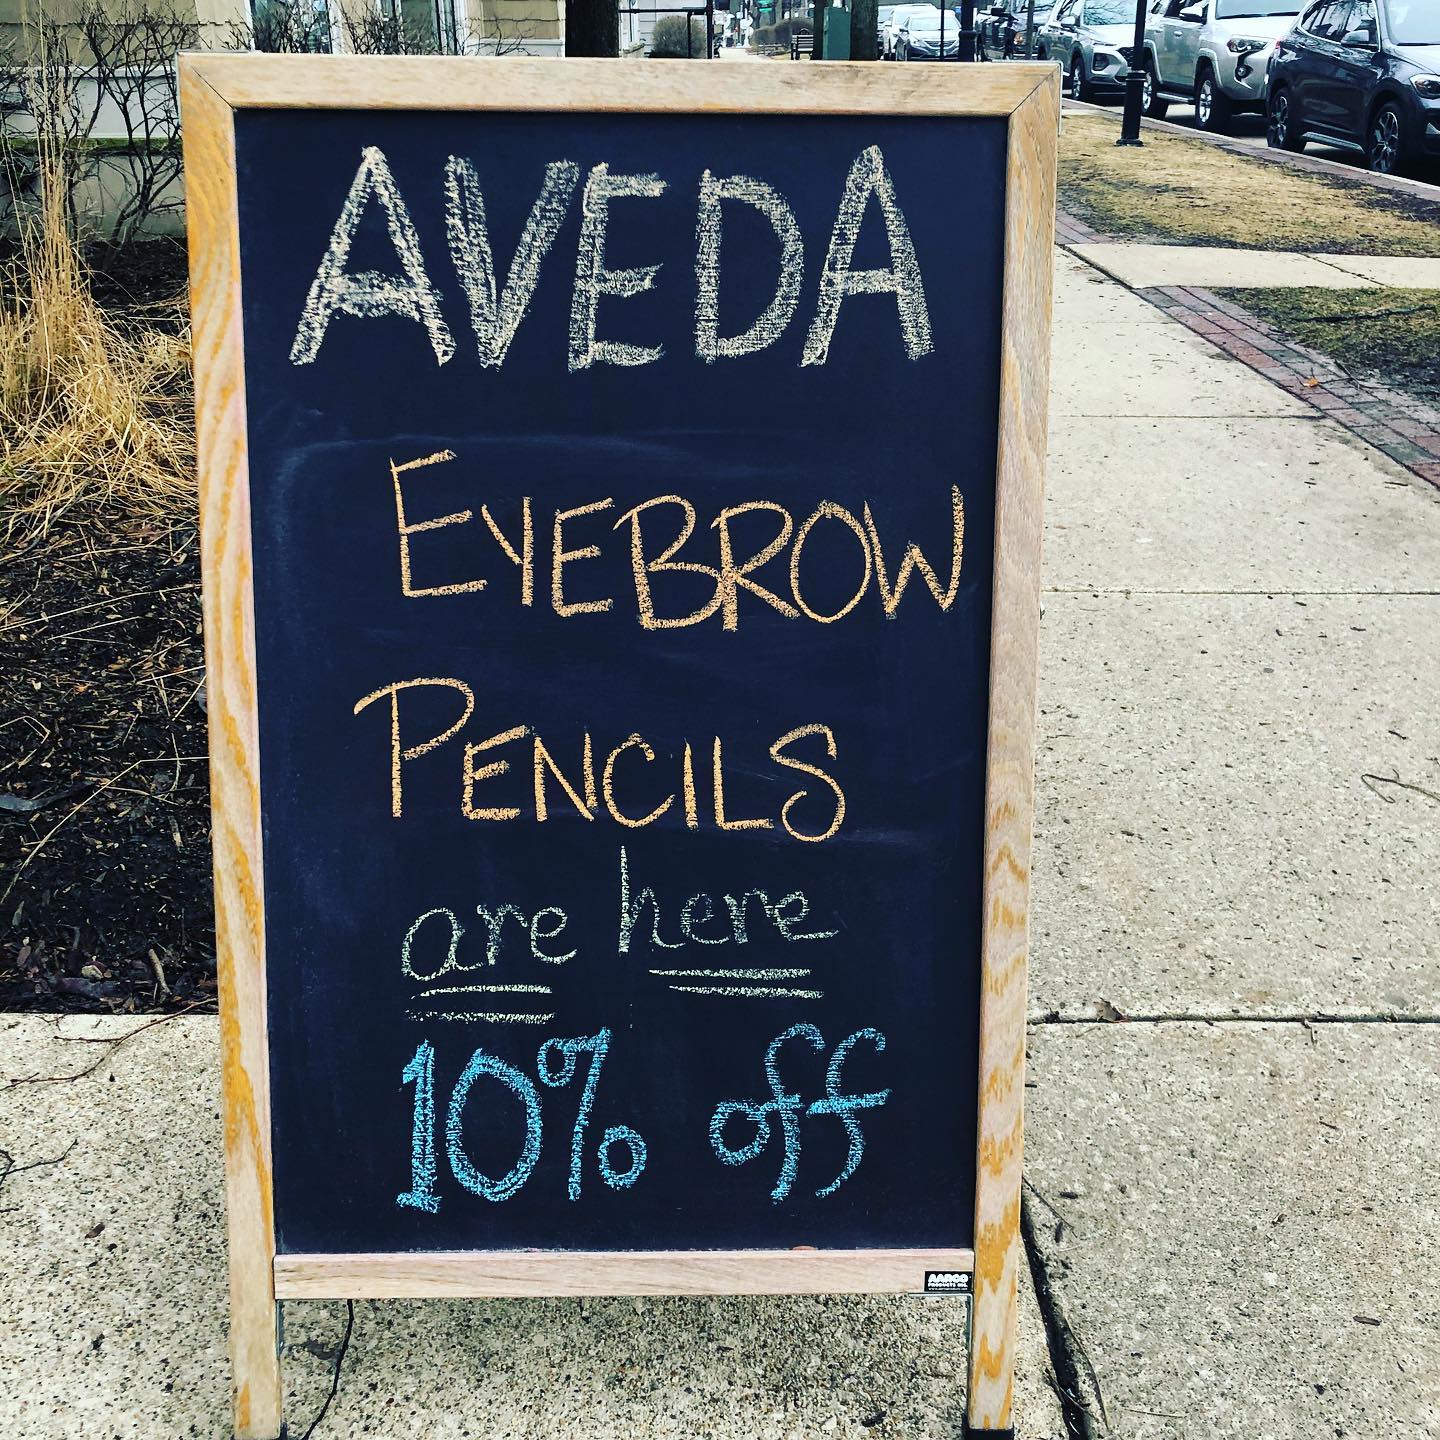 AVEDA
EYEBROW
PENCILS
are here
10% off
AARCO
PRODUCTS INC.